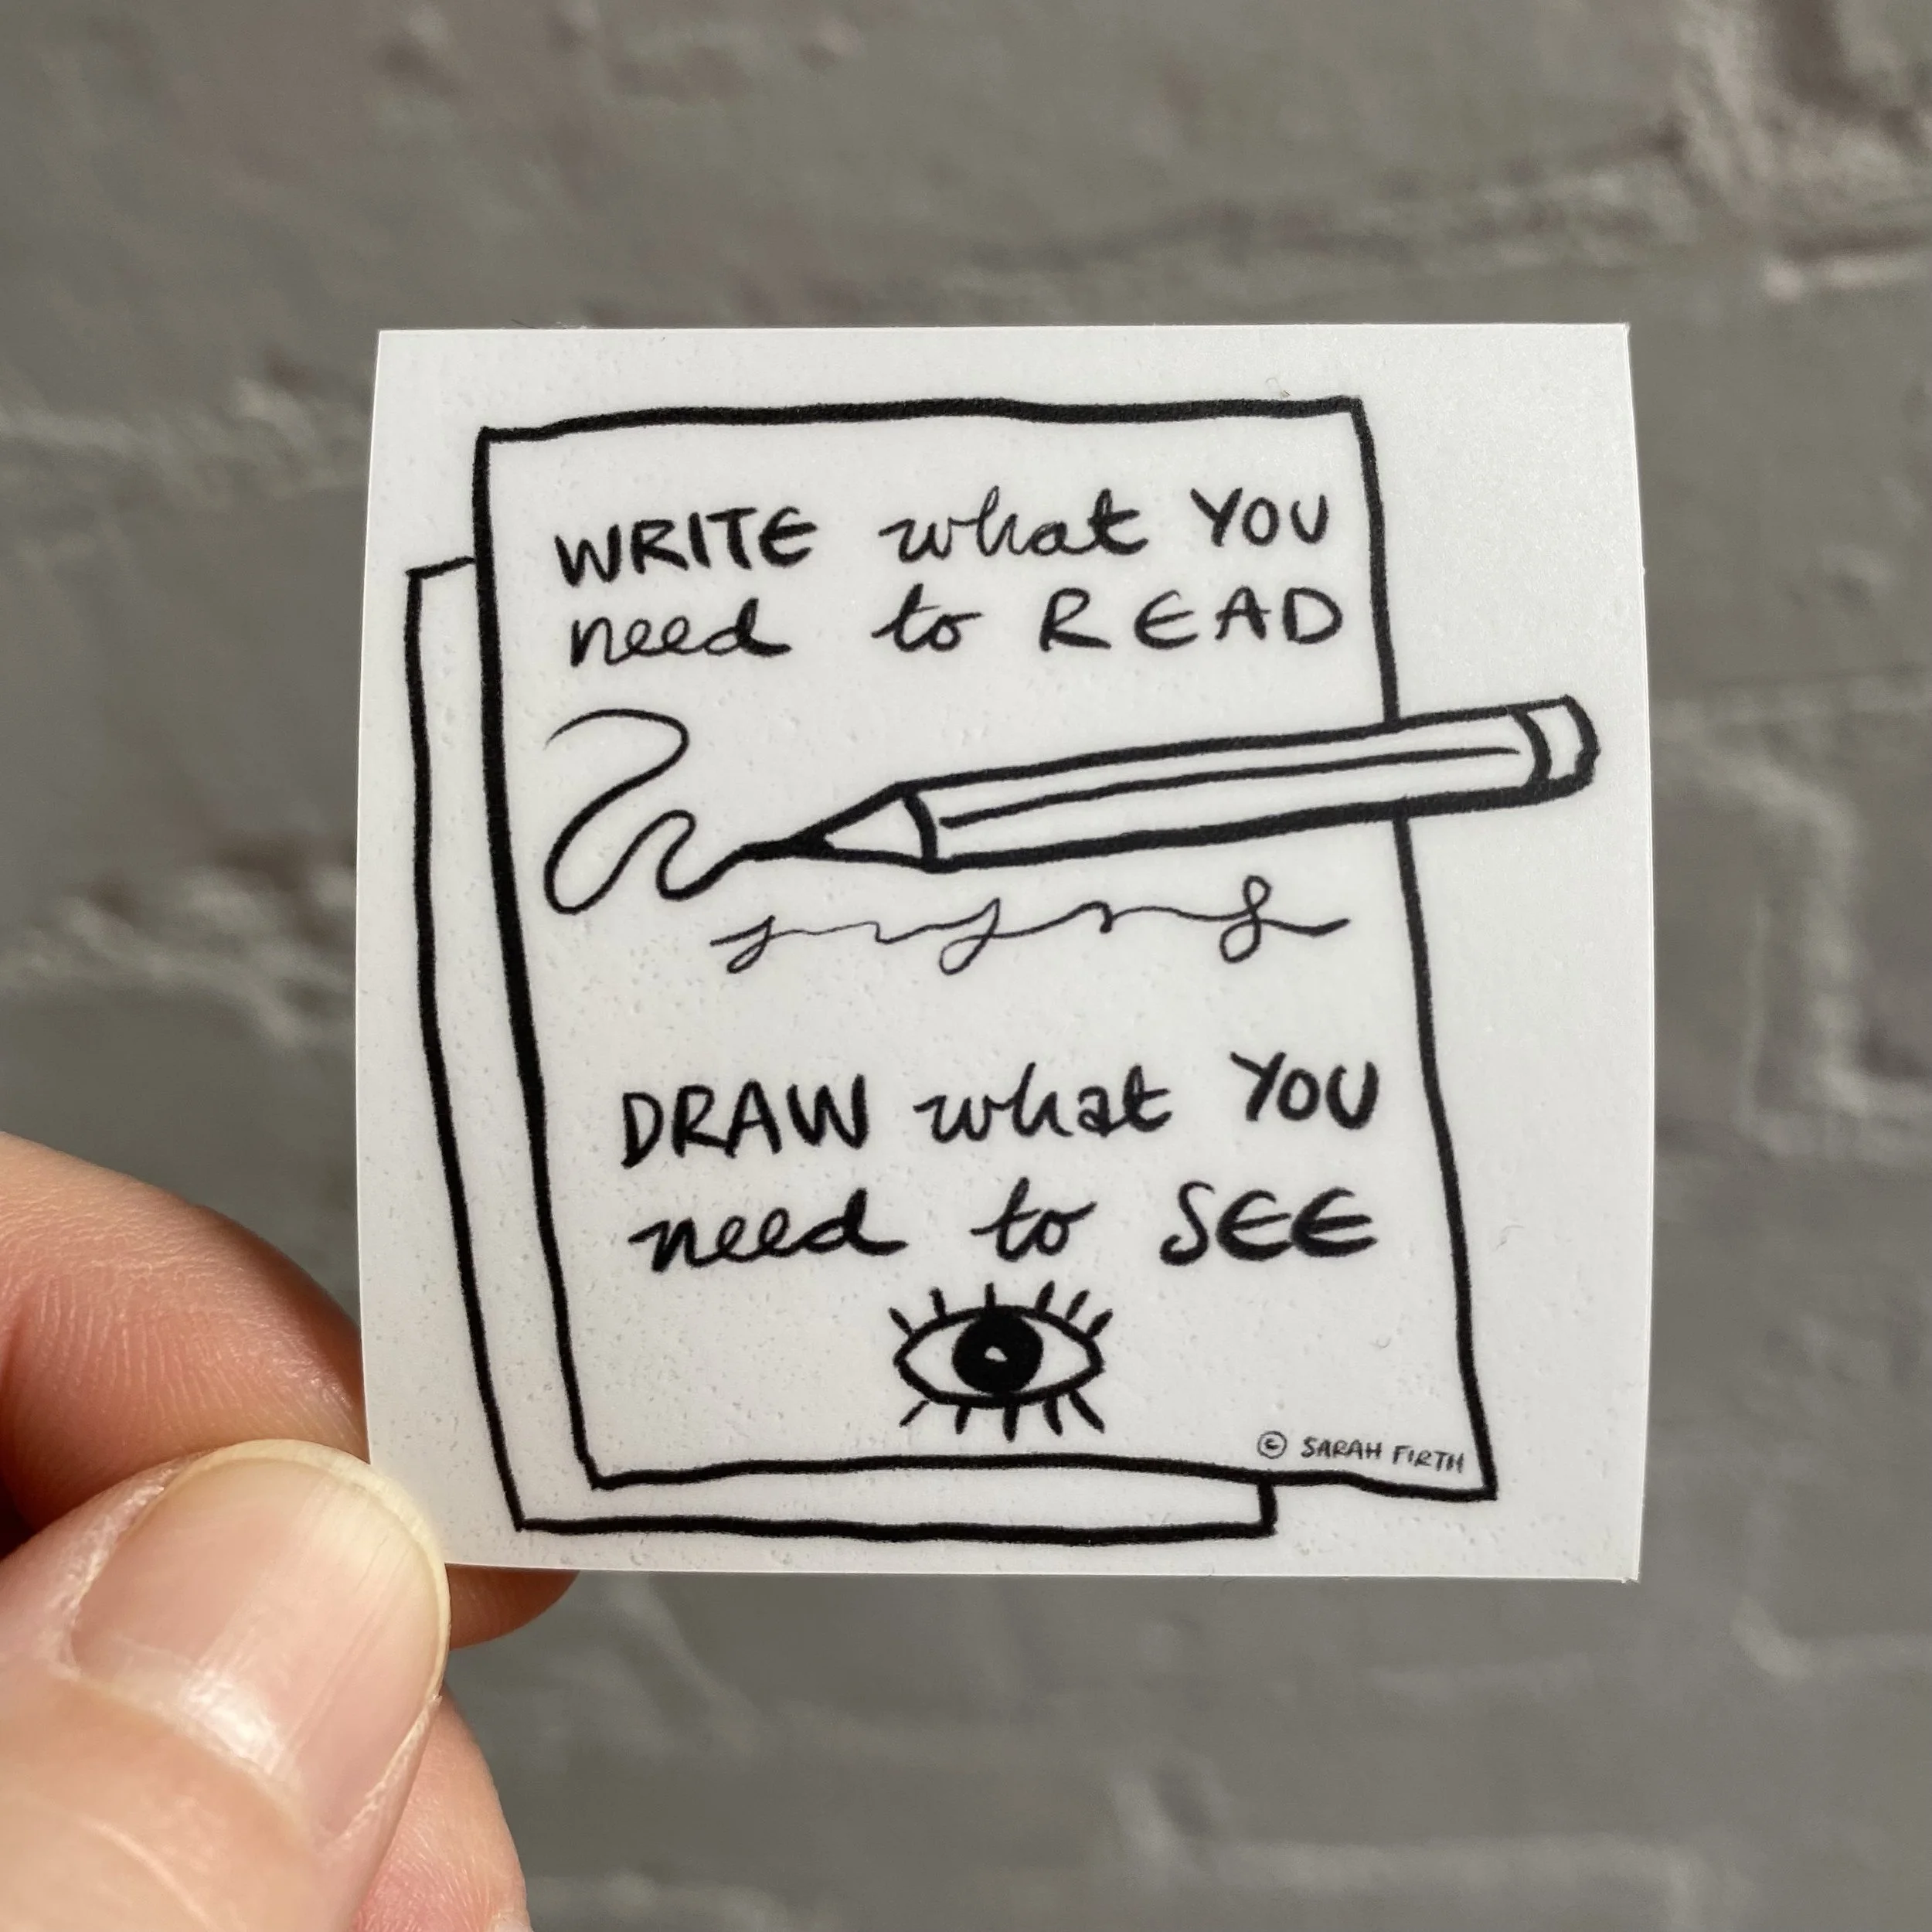 WRITE what YOU
need to READ
DRAW what YOU
need to SEE
© SARAH FIRTH